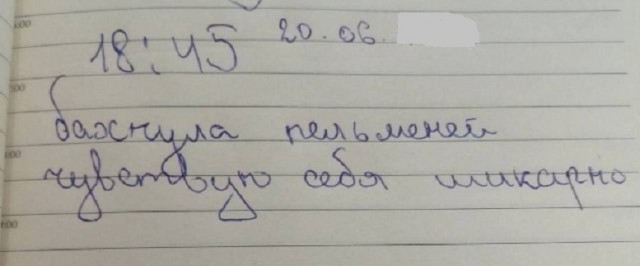 18:45 20.06.
бахнула пельменей
чувствую себя шикарно